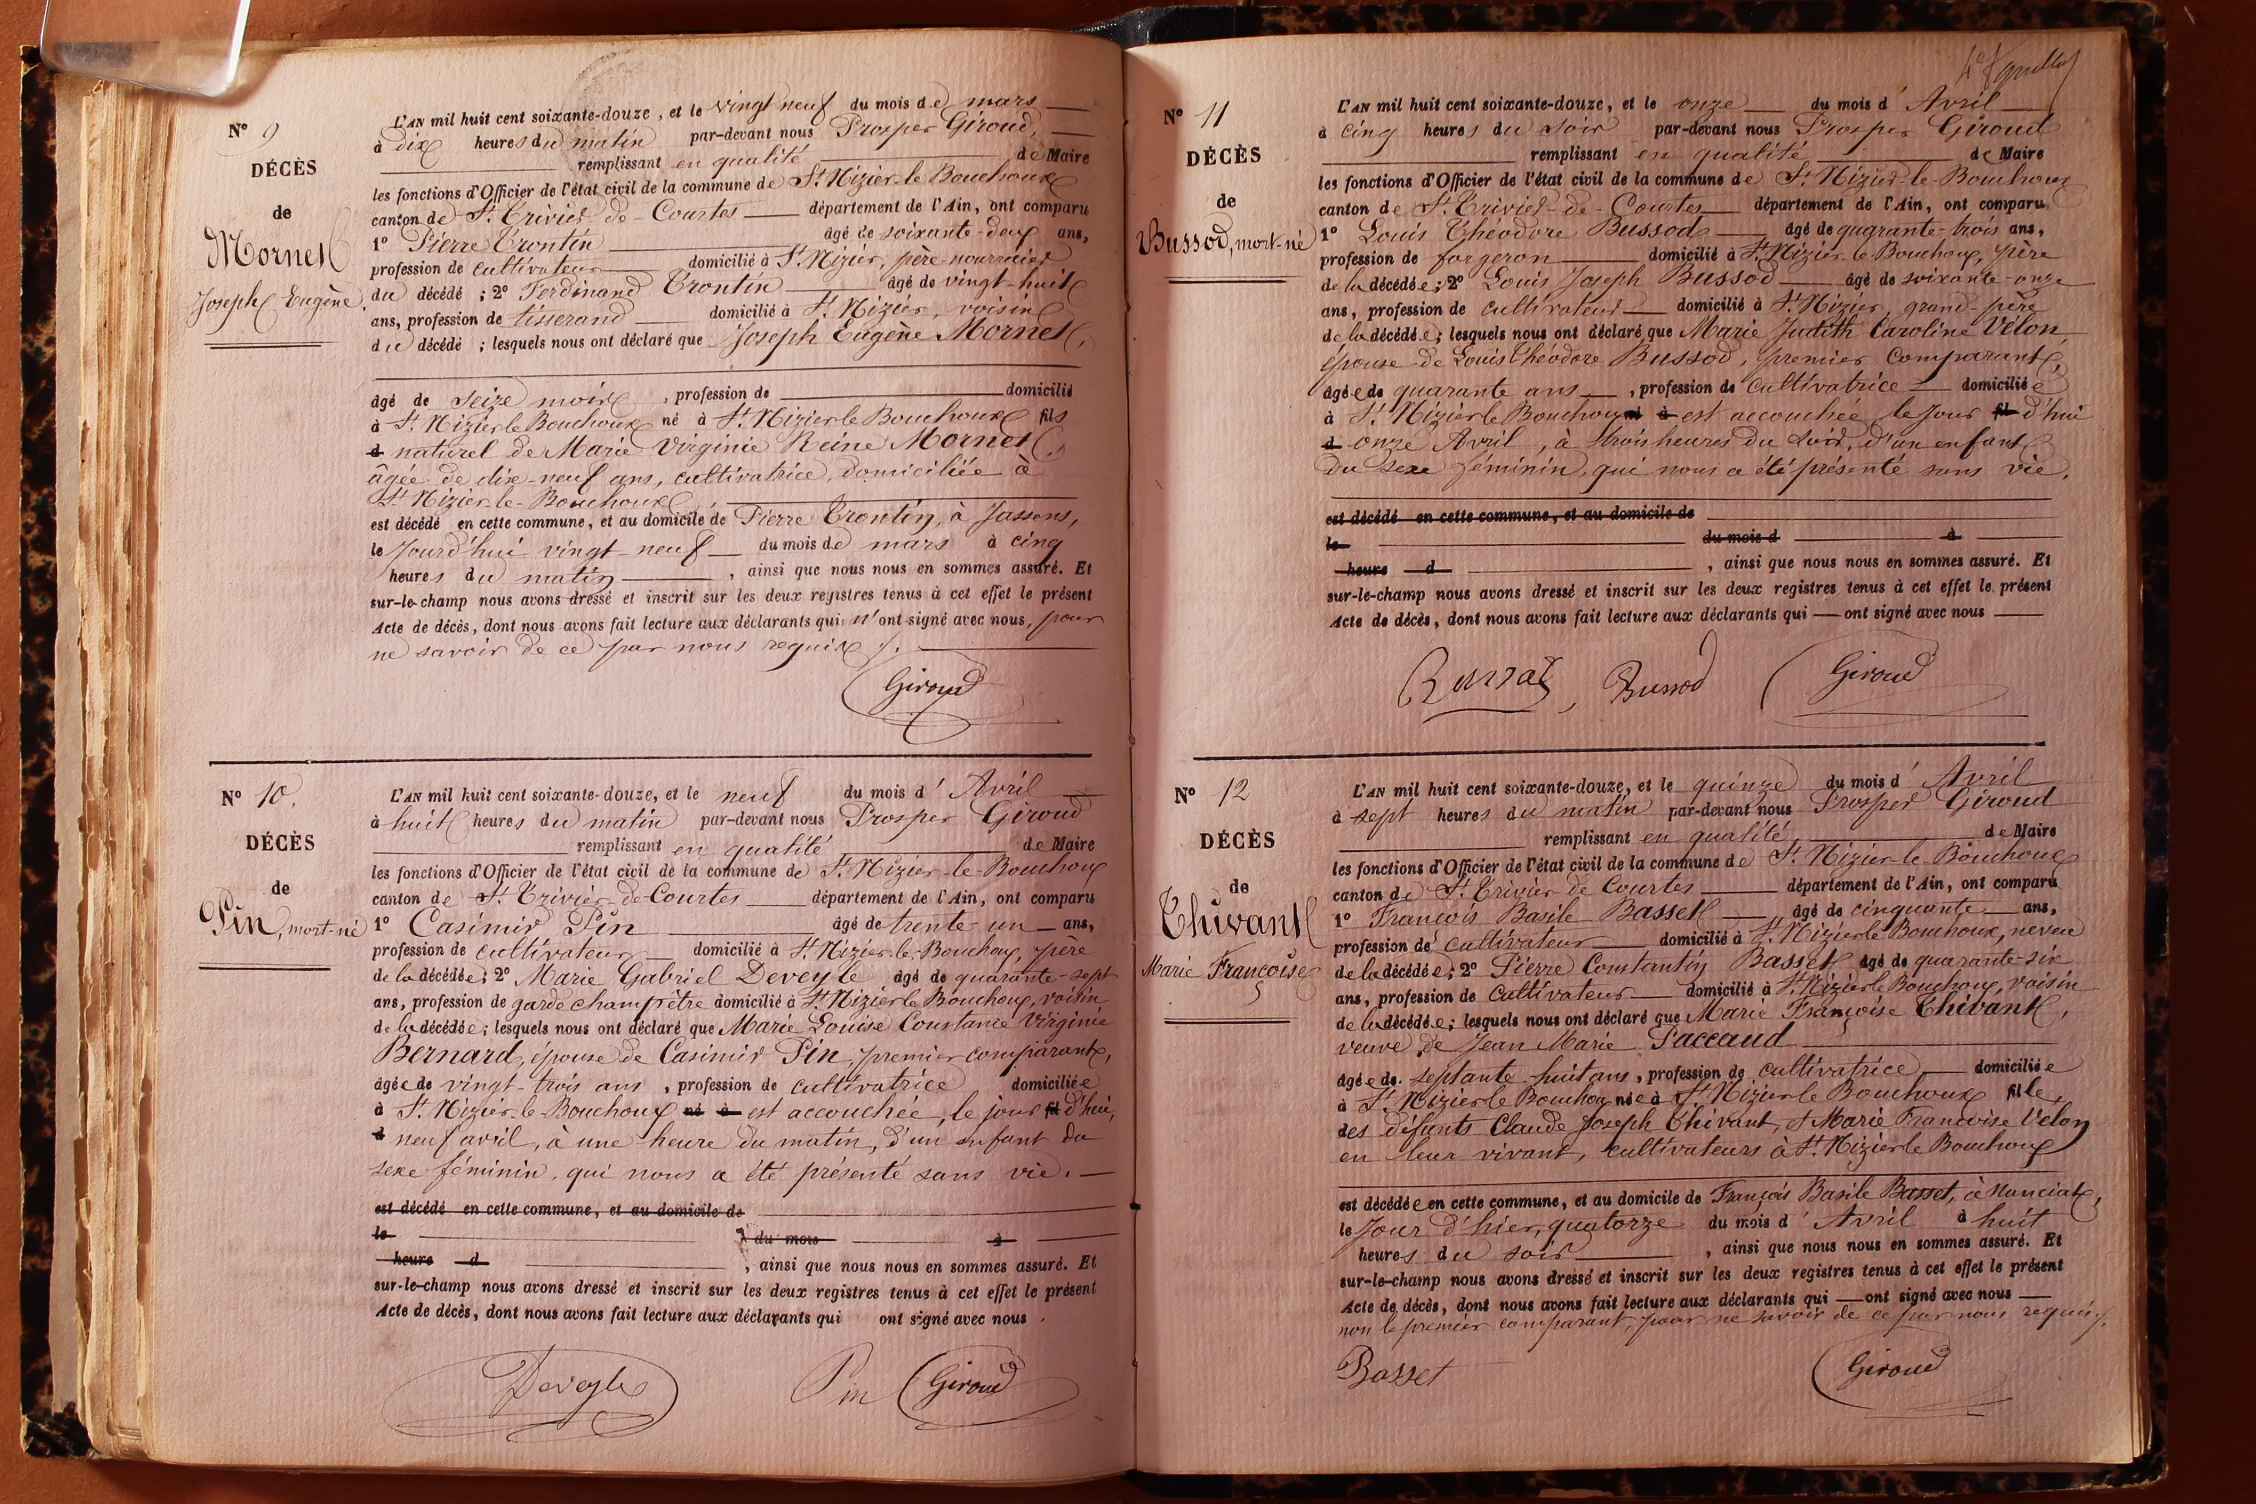 N° 9
DÉCÈS
de
Mornet
Joseph Eugène
L'AN mil huit cent soixante-douze, et le vingt neuf du mois de mars
à dix heures du matin par-devant nous Prosper Giroud,
remplissant en qualité de Maire
les fonctions d'Officier de l'état civil de la commune de St Nizier-le Bouchoux
canton de St Trivier-de-Courtes département de l'Ain, ont comparu
1° Pierre Trontin âgé de soixante-deux ans,
profession de cultivateur domicilié à St Nizier, père nourricier
du décédé ; 2° Ferdinand Trontin âgé de vingt-huit
ans, profession de tisserand domicilié à St Nizier, voisin
du décédé ; lesquels nous ont déclaré que Joseph Eugène Mornet,
âgé de seize mois , profession de domicilié
à St Nizier le Bouchoux né à St Nizier le Bouchoux fils
d naturel de Marie Virginie Reine Mornet,
âgée de dix-neuf ans, cultivatrice, domiciliée à
St Nizier-le-Bouchoux,
est décédé en cette commune, et au domicile de Pierre Trontin, à Jassans,
le Jourd'hui vingt-neuf du mois de mars à cinq
heures du matin , ainsi que nous nous en sommes assuré. Et
sur-le-champ nous avons dressé et inscrit sur les deux registres tenus à cet effet le présent
Acte de décès, dont nous avons fait lecture aux déclarants qui n'ont signé avec nous, pour
ne savoir de ce par nous requis /.
Giroud
N° 10.
DÉCÈS
de
Pin, mort-né
L'AN mil huit cent soixante-douze, et le neuf du mois d' Avril
à huit heures du matin par-devant nous Prosper Giroud
remplissant en qualité de Maire
les fonctions d'Officier de l'état civil de la commune de St Nizier-le-Bouchoux
canton de St Trivier-de-Courtes département de l'Ain, ont comparu
1° Casimir Pin âgé de trente-un ans,
profession de cultivateur domicilié à St Nizier-le-Bouchoux, père
de la décédée; 2° Marie Gabriel Deveyle âgé de quarante-sept
ans, profession de garde champêtre domicilié à St Nizier le Bouchoux, voisin
de la décédée; lesquels nous ont déclaré que Marie Louise Constance Virginie
Bernard, épouse de Casimir Pin, premier comparant,
âgée de vingt-trois ans , profession de cultivatrice domiciliée
à St Nizier-le-Bouchoux né à est accouchée, le jour fil d'hui,
d neuf avril, à une heure du matin, d'un enfant du
sexe féminin, qui nous a été présenté sans vie.
est décédé en cette commune, et au domicile de
le du mois à
heure d , ainsi que nous nous en sommes assuré. Et
sur-le-champ nous avons dressé et inscrit sur les deux registres tenus à cet effet le présent
Acte de décès, dont nous avons fait lecture aux déclarants qui ont signé avec nous .
Deveyle Pin Giroud
N° 11
DÉCÈS
de
Bussod, mort-né
L'AN mil huit cent soixante-douze, et le onze du mois d' Avril
à cinq heures du soir par-devant nous Prosper Giroud
remplissant en qualité de Maire
les fonctions d'Officier de l'état civil de la commune de St Nizier-le-Bouchoux
canton de St Trivier-de-Courtes département de l'Ain, ont comparu
1° Louis Théodore Bussod âgé de quarante-trois ans,
profession de forgeron domicilié à St Nizier-le Bouchoux, père
de la décédée; 2° Louis Joseph Bussod âgé de soixante-onze
ans, profession de cultivateur domicilié à St Nizier, grand-père
de la décédée; lesquels nous ont déclaré que Marie Judith Caroline Velon,
épouse de Louis Théodore Bussod, premier comparant,
âgée de quarante ans , profession de cultivatrice domiciliée
à St Nizier le Bouchoux né à est accouchée le jour fil d'hui
d onze Avril, à trois heures du soir, d'un enfant
du sexe féminin, qui nous a été présenté sans vie.
est décédé en cette commune, et au domicile de
le du mois d à
heure d , ainsi que nous nous en sommes assuré. Et
sur-le-champ nous avons dressé et inscrit sur les deux registres tenus à cet effet le présent
Acte de décès, dont nous avons fait lecture aux déclarants qui ont signé avec nous
Bussod, Bussod Giroud
N° 12
DÉCÈS
de
Thivant
Marie Françoise
L'AN mil huit cent soixante-douze, et le quinze du mois d' Avril
à sept heures du matin par-devant nous Prosper Giroud
remplissant en qualité de Maire
les fonctions d'Officier de l'état civil de la commune de St Nizier-le-Bouchoux
canton de St Trivier-de Courtes département de l'Ain, ont comparu
1° François Basile Basset âgé de cinquante ans,
profession de cultivateur domicilié à St Nizier le Bouchoux, neveu
de la décédée; 2° Pierre Constantin Basset âgé de quarante-six
ans, profession de cultivateur domicilié à St Nizier le Bouchoux, voisin
de la décédée; lesquels nous ont déclaré que Marie Françoise Thivant,
veuve de Jean Marie Paccaud
âgée de septante-huit ans , profession de cultivatrice domiciliée
à St Nizier le Bouchoux née à St Nizier le Bouchoux fille
des défunts Claude Joseph Thivant, & Marie Françoise Velon
en leur vivant, cultivateurs à St Nizier le Bouchoux
est décédée en cette commune, et au domicile de François Basile Basset, à Manciat,
le Jour d'hier, quatorze du mois d' Avril à huit
heures du soir , ainsi que nous nous en sommes assuré. Et
sur-le-champ nous avons dressé et inscrit sur les deux registres tenus à cet effet le présent
Acte de décès, dont nous avons fait lecture aux déclarants qui ont signé avec nous
non le premier comparant, pour ne savoir de ce par nous requis /.
Basset Giroud